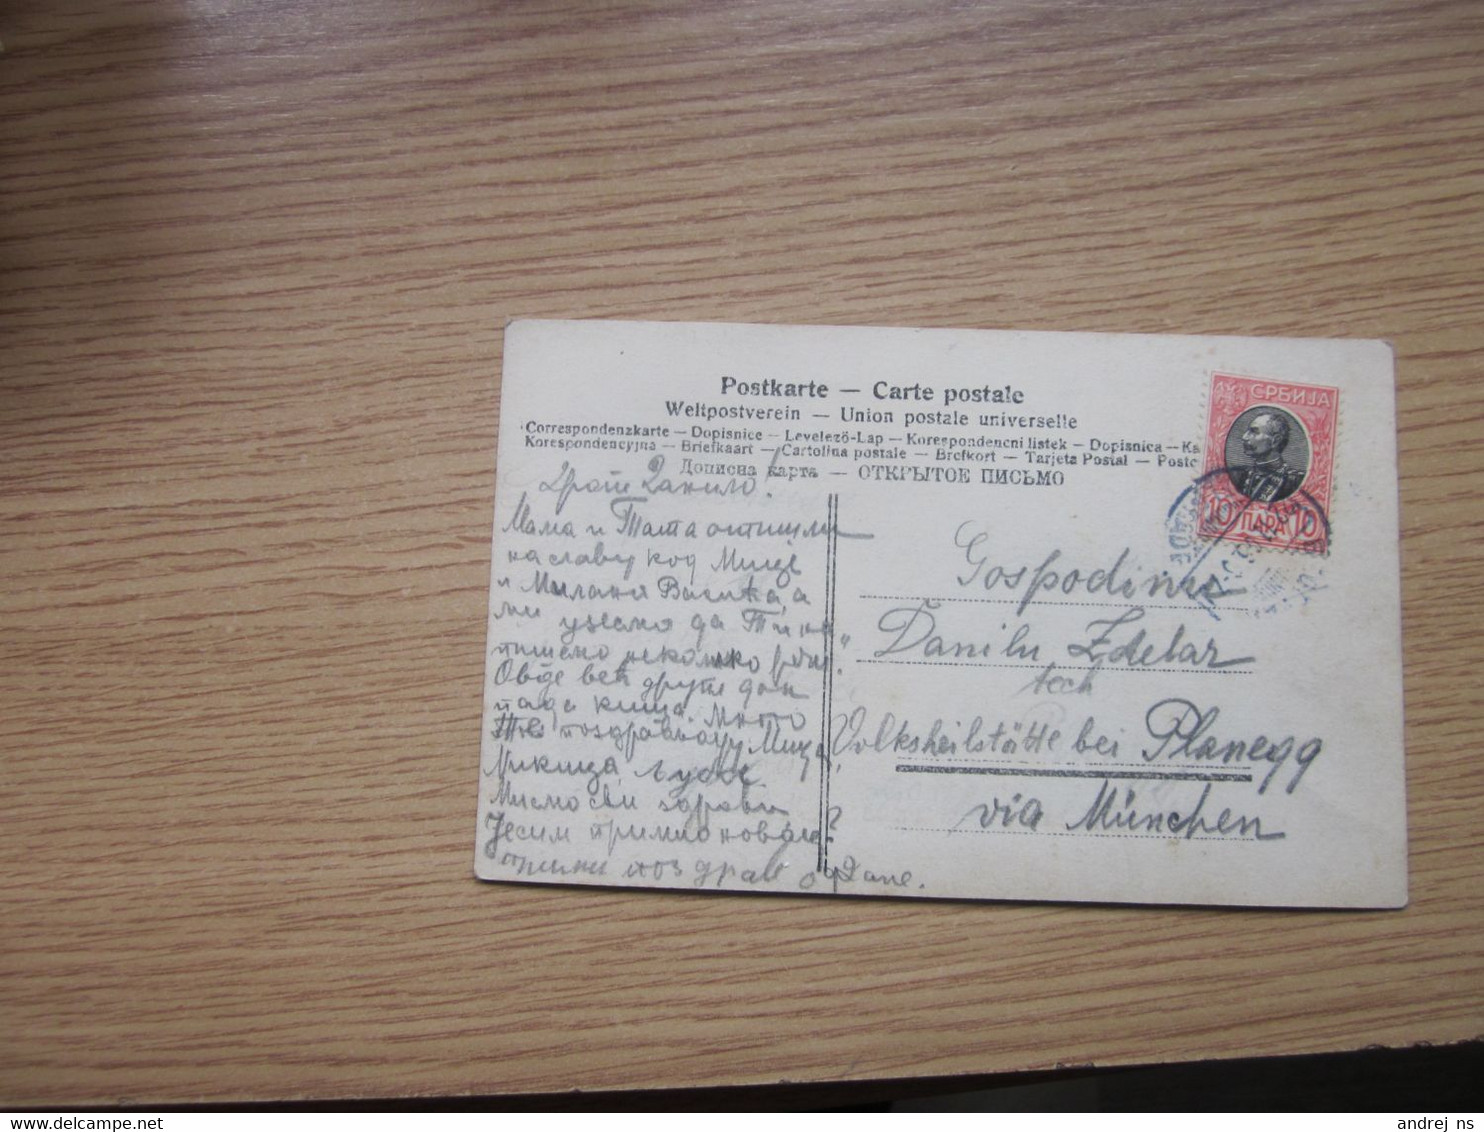 Postkarte — Carte postale
Weltpostverein — Union postale universelle
Correspondenzkarte — Dopisnice — Levelező-Lap — Korespondencni listek — Dopisnica — Ka
Korespondencyjna — Briefkaart — Cartolina postale — Brefkort — Tarjeta Postal — Postc
Дописна карта — ОТКРЫТОЕ ПИСЬМО
СРБИЈА
10 ПАРА 10
Драги Данило!
Мама и Тата отишли
на славу код Мице
и Милана Васића, а
ми узесмо да Ти
пишемо неколико
Овде већ други дан
пада киша. Много
Те поздрављају Мица,
Микица,
Ми смо сви здрави
Јесим примио новац?
прими поздрав од Дане.
Gospodinu
Danilu Zdelar
tech
Volksheilstätte bei Planegg
via München
andrej_ns